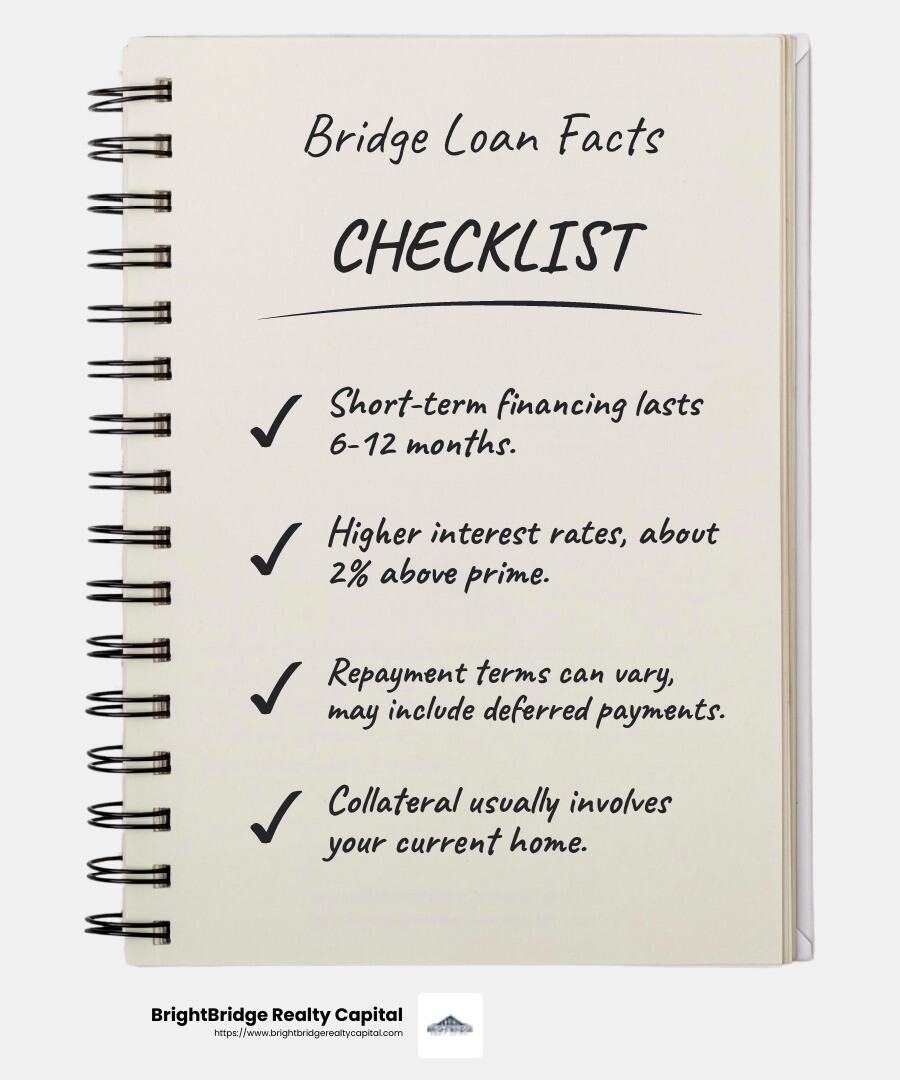 Bridge Loan Facts
CHECKLIST
Short-term financing lasts
6-12 months.
Higher interest rates, about
2% above prime.
Repayment terms can vary,
may include deferred payments.
Collateral usually involves
your current home.
BrightBridge Realty Capital
https://www.brightbridgerealtycapital.com